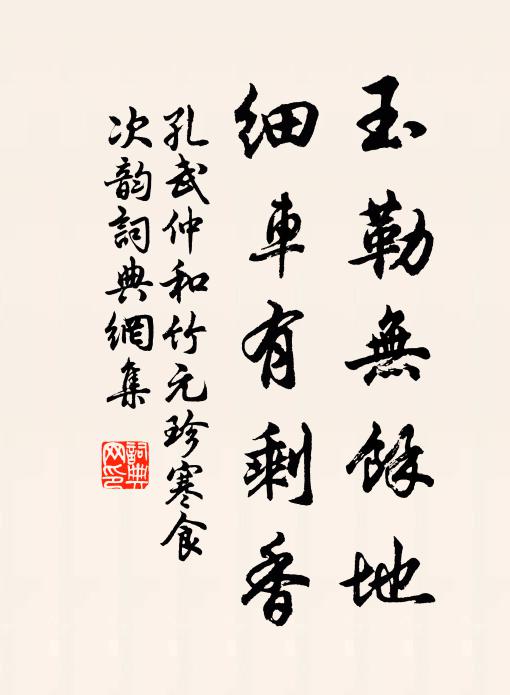 玉勒無餘地
細車有剩香
孔武仲和竹元珍寒食
次韵詞典網集
詞典网印